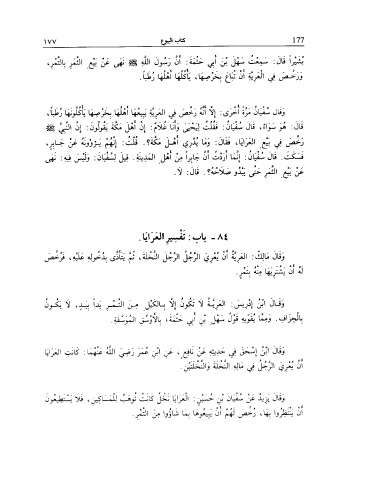 ١٧٧ كتاب البيوع 177
بُشَيْراً قَالَ: سَمِعْتُ سَهْلَ بْنَ أَبِي حَثْمَةَ: أَنَّ رَسُولَ اللَّهِ ﷺ نَهَى عَنْ بَيْعِ الثَّمَرِ بِالتَّمْرِ،
وَرَخَّصَ فِي الْعَرِيَّةِ أَنْ تُبَاعَ بِخَرْصِهَا، يَأْكُلُهَا أَهْلُهَا رُطَباً.
وَقَالَ سُفْيَانُ مَرَّةً أُخْرَى: إِلَّا أَنَّهُ رَخَّصَ فِي الْعَرِيَّةِ يَبِيعُهَا أَهْلُهَا بِخَرْصِهَا يَأْكُلُونَهَا رُطَباً،
قَالَ: هُوَ سَوَاءٌ، قَالَ سُفْيَانُ: فَقُلْتُ لِيَحْيَى وَأَنَا غُلَامٌ: إِنَّ أَهْلَ مَكَّةَ يَقُولُونَ: إِنَّ النَّبِيَّ ﷺ
رَخَّصَ فِي بَيْعِ الْعَرَايَا، فَقَالَ: وَمَا يُدْرِي أَهْلَ مَكَّةَ؟. قُلْتُ: إِنَّهُمْ يَرْوُونَهُ عَنْ جَابِرٍ،
فَسَكَتَ. قَالَ سُفْيَانُ: إِنَّمَا أَرَدْتُ أَنَّ جَابِراً مِنْ أَهْلِ الْمَدِينَةِ. قِيلَ لِسُفْيَانَ: وَلَيْسَ فِيهِ: نَهَى
عَنْ بَيْعِ الثَّمَرِ حَتَّى يَبْدُوَ صَلَاحُهُ؟. قَالَ: لَا.
٨٤ - باب: تَفْسِيرِ الْعَرَايَا.
وَقَالَ مَالِكٌ: الْعَرِيَّةُ أَنْ يُعْرِيَ الرَّجُلُ الرَّجُلَ النَّخْلَةَ، ثُمَّ يَتَأَذَّى بِدُخُولِهِ عَلَيْهِ، فَرُخِّصَ
لَهُ أَنْ يَشْتَرِيَهَا مِنْهُ بِتَمْرٍ.
وَقَالَ ابْنُ إِدْرِيسَ: الْعَرِيَّةُ لَا تَكُونُ إِلَّا بِالْكَيْلِ مِنَ التَّمْرِ يَداً بِيَدٍ، لَا يَكُونُ
بِالْجِزَافِ. وَمِمَّا يُقَوِّيهِ قَوْلُ سَهْلِ بْنِ أَبِي حَثْمَةَ: بِالْأَوْسُقِ الْمُوَسَّقَةِ.
وَقَالَ ابْنُ إِسْحَقَ فِي حَدِيثِهِ عَنْ نَافِعٍ، عَنِ ابْنِ عُمَرَ رَضِيَ اللَّهُ عَنْهُمَا: كَانَتِ الْعَرَايَا
أَنْ يُعْرِيَ الرَّجُلُ فِي مَالِهِ النَّخْلَةَ وَالنَّخْلَتَيْنِ.
وَقَالَ يَزِيدُ عَنْ سُفْيَانَ بْنِ حُسَيْنٍ: الْعَرَايَا نَخْلٌ كَانَتْ تُوهَبُ لِلْمَسَاكِينِ، فَلَا يَسْتَطِيعُونَ
أَنْ يَنْتَظِرُوا بِهَا، رُخِّصَ لَهُمْ أَنْ يَبِيعُوهَا بِمَا شَاؤُوا مِنَ التَّمْرِ.